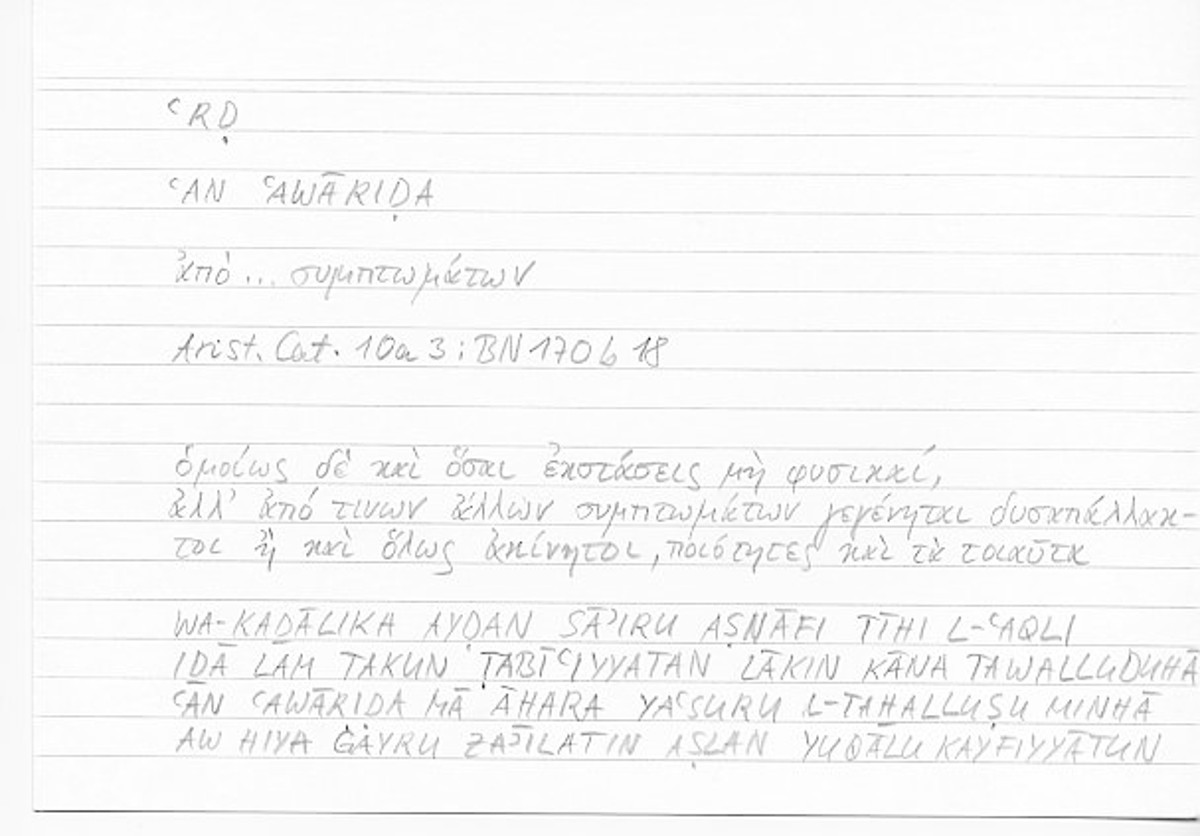 ʿRḌ
ʿAN ʿAWĀRIḌA
ἀπὸ ... συμπτωμάτων
Arist. Cat. 10a 3 : BN 170 b 18
ὁμοίως δὲ καὶ ὅσαι ἐκστάσεις μὴ φυσικαί,
ἀλλ' ἀπό τινων ἄλλων συμπτωμάτων γεγένηται δυσαπάλλακ-
τοι ἢ καὶ ὅλως ἀκίνητοι, ποιότητες καὶ τὰ τοιαῦτα
WA-KAḎĀLIKA AYḌAN SĀʾIRU AṢNĀFI TĪHI L-ʿAQLI
IḎĀ LAM TAKUN ṬABĪʿIYYATAN LĀKIN KĀNA TAWALLUDUHĀ
ʿAN ʿAWĀRIḌA MĀ ĀḪARA YAʿSURU L-TAḪALLUṢU MINHĀ
AW HIYA ĠAYRU ZĀʾILATIN AṢLAN YUQĀLU KAYFIYYĀTUN